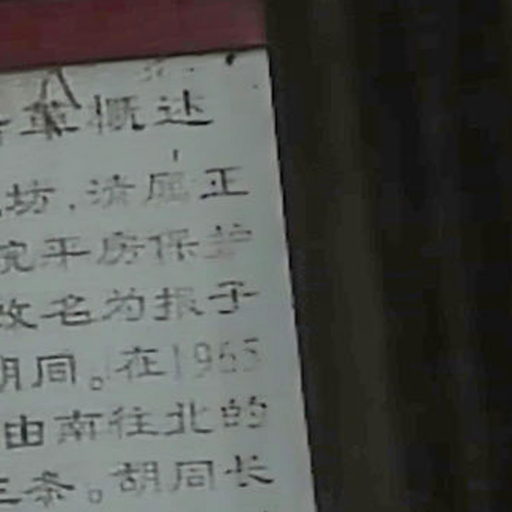 概述
坊,清属正
院平房保护
改名为报子
胡同。在1965
由南往北的
三条。胡同长